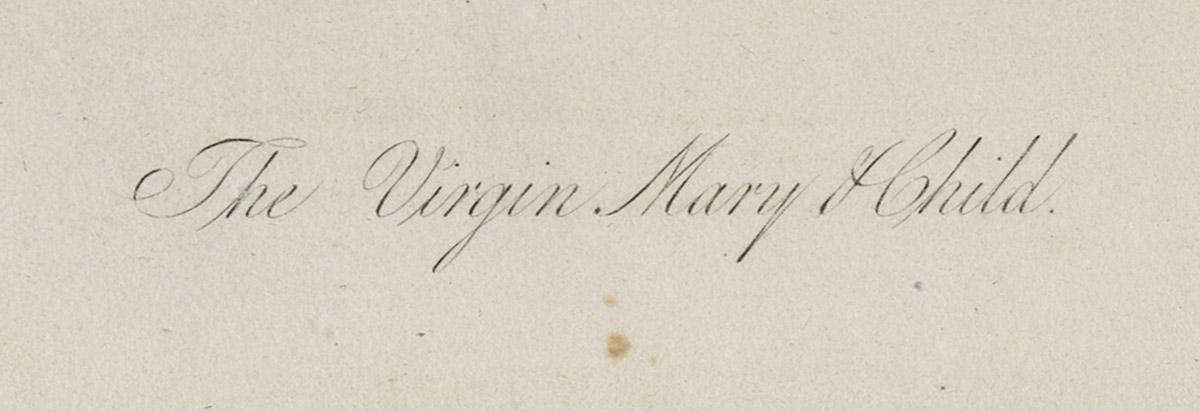 The Virgin Mary & Child.